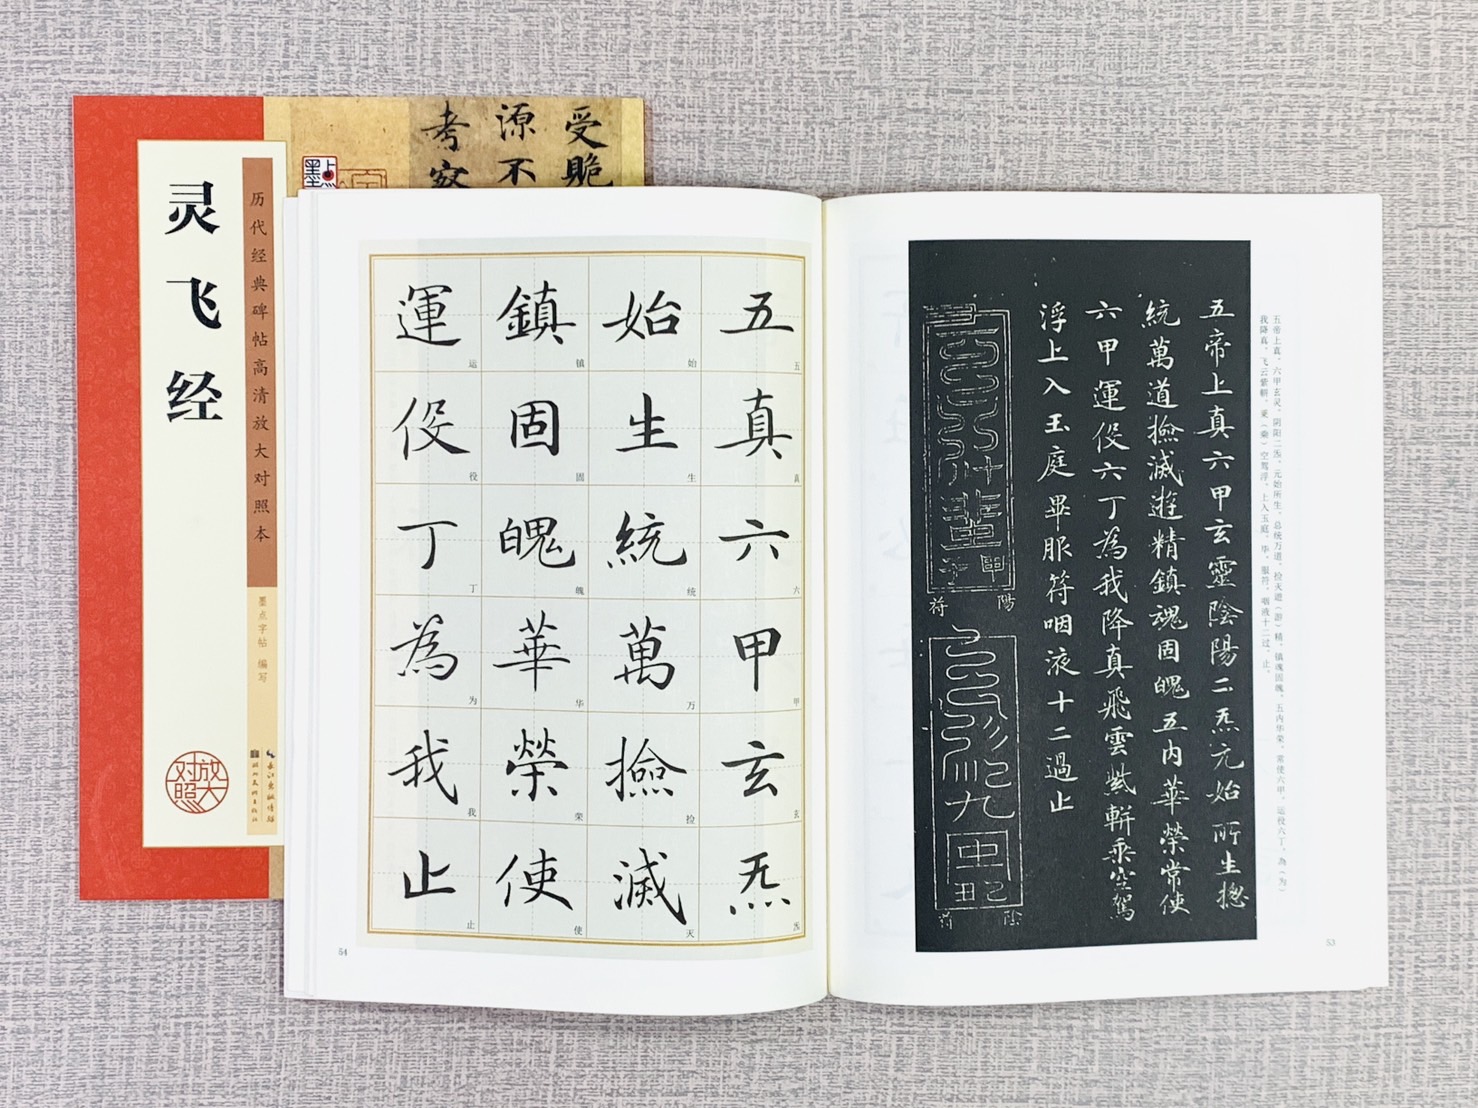 灵飞经
历代经典碑帖高清放大对照本
墨点字帖 编写
放大对照
受
源不
考察
五真六甲玄炁
五真六甲玄炁
始生統萬撿滅
始生统万捡灭
鎮固魄華榮使
镇固魄华荣使
運役丁為我止
运役丁为我止
54
五帝上真六甲玄靈陰陽二炁元始所生摠
統萬道撿滅遊精鎮魂固魄五内華榮常使
六甲運役六丁為我降真飛雲紫輧乘空駕
浮上入玉庭畢服符咽液十二過止
陽符
陰符
五帝上真，六甲玄灵，阴阳二炁，元始所生，总统万道，捡灭遊（游）精，镇魂固魄，五内华荣，常使六甲，运役六丁，為（为）
我降真，飞云紫軿，乘（乘）空驾浮，上入玉庭。毕，服符，咽液十二过，止。
53